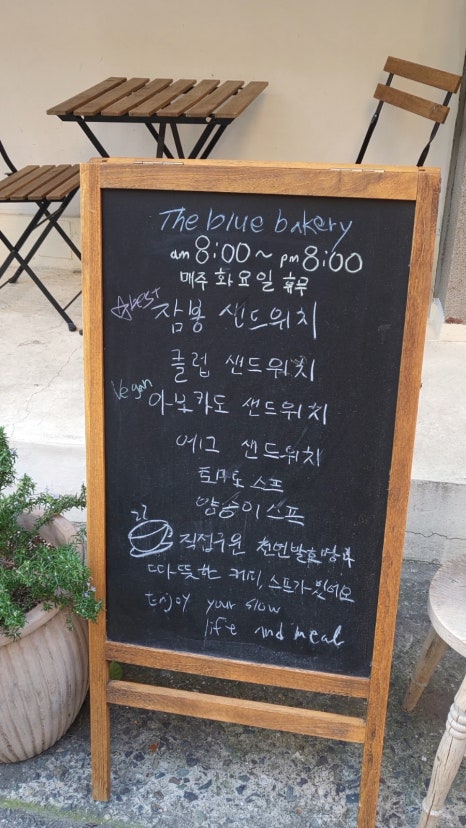 The blue bakery
am 8:00 ~ pm 8:00
매주 화요일 휴무
☆best 잠봉 샌드위치
클럽 샌드위치
Vegan 아보카도 샌드위치
에그 샌드위치
토마토 스프
양송이 스프
직접구운 천연발효빵과
따뜻한 커피, 스프가 있어요
Enjoy your slow
life and meal